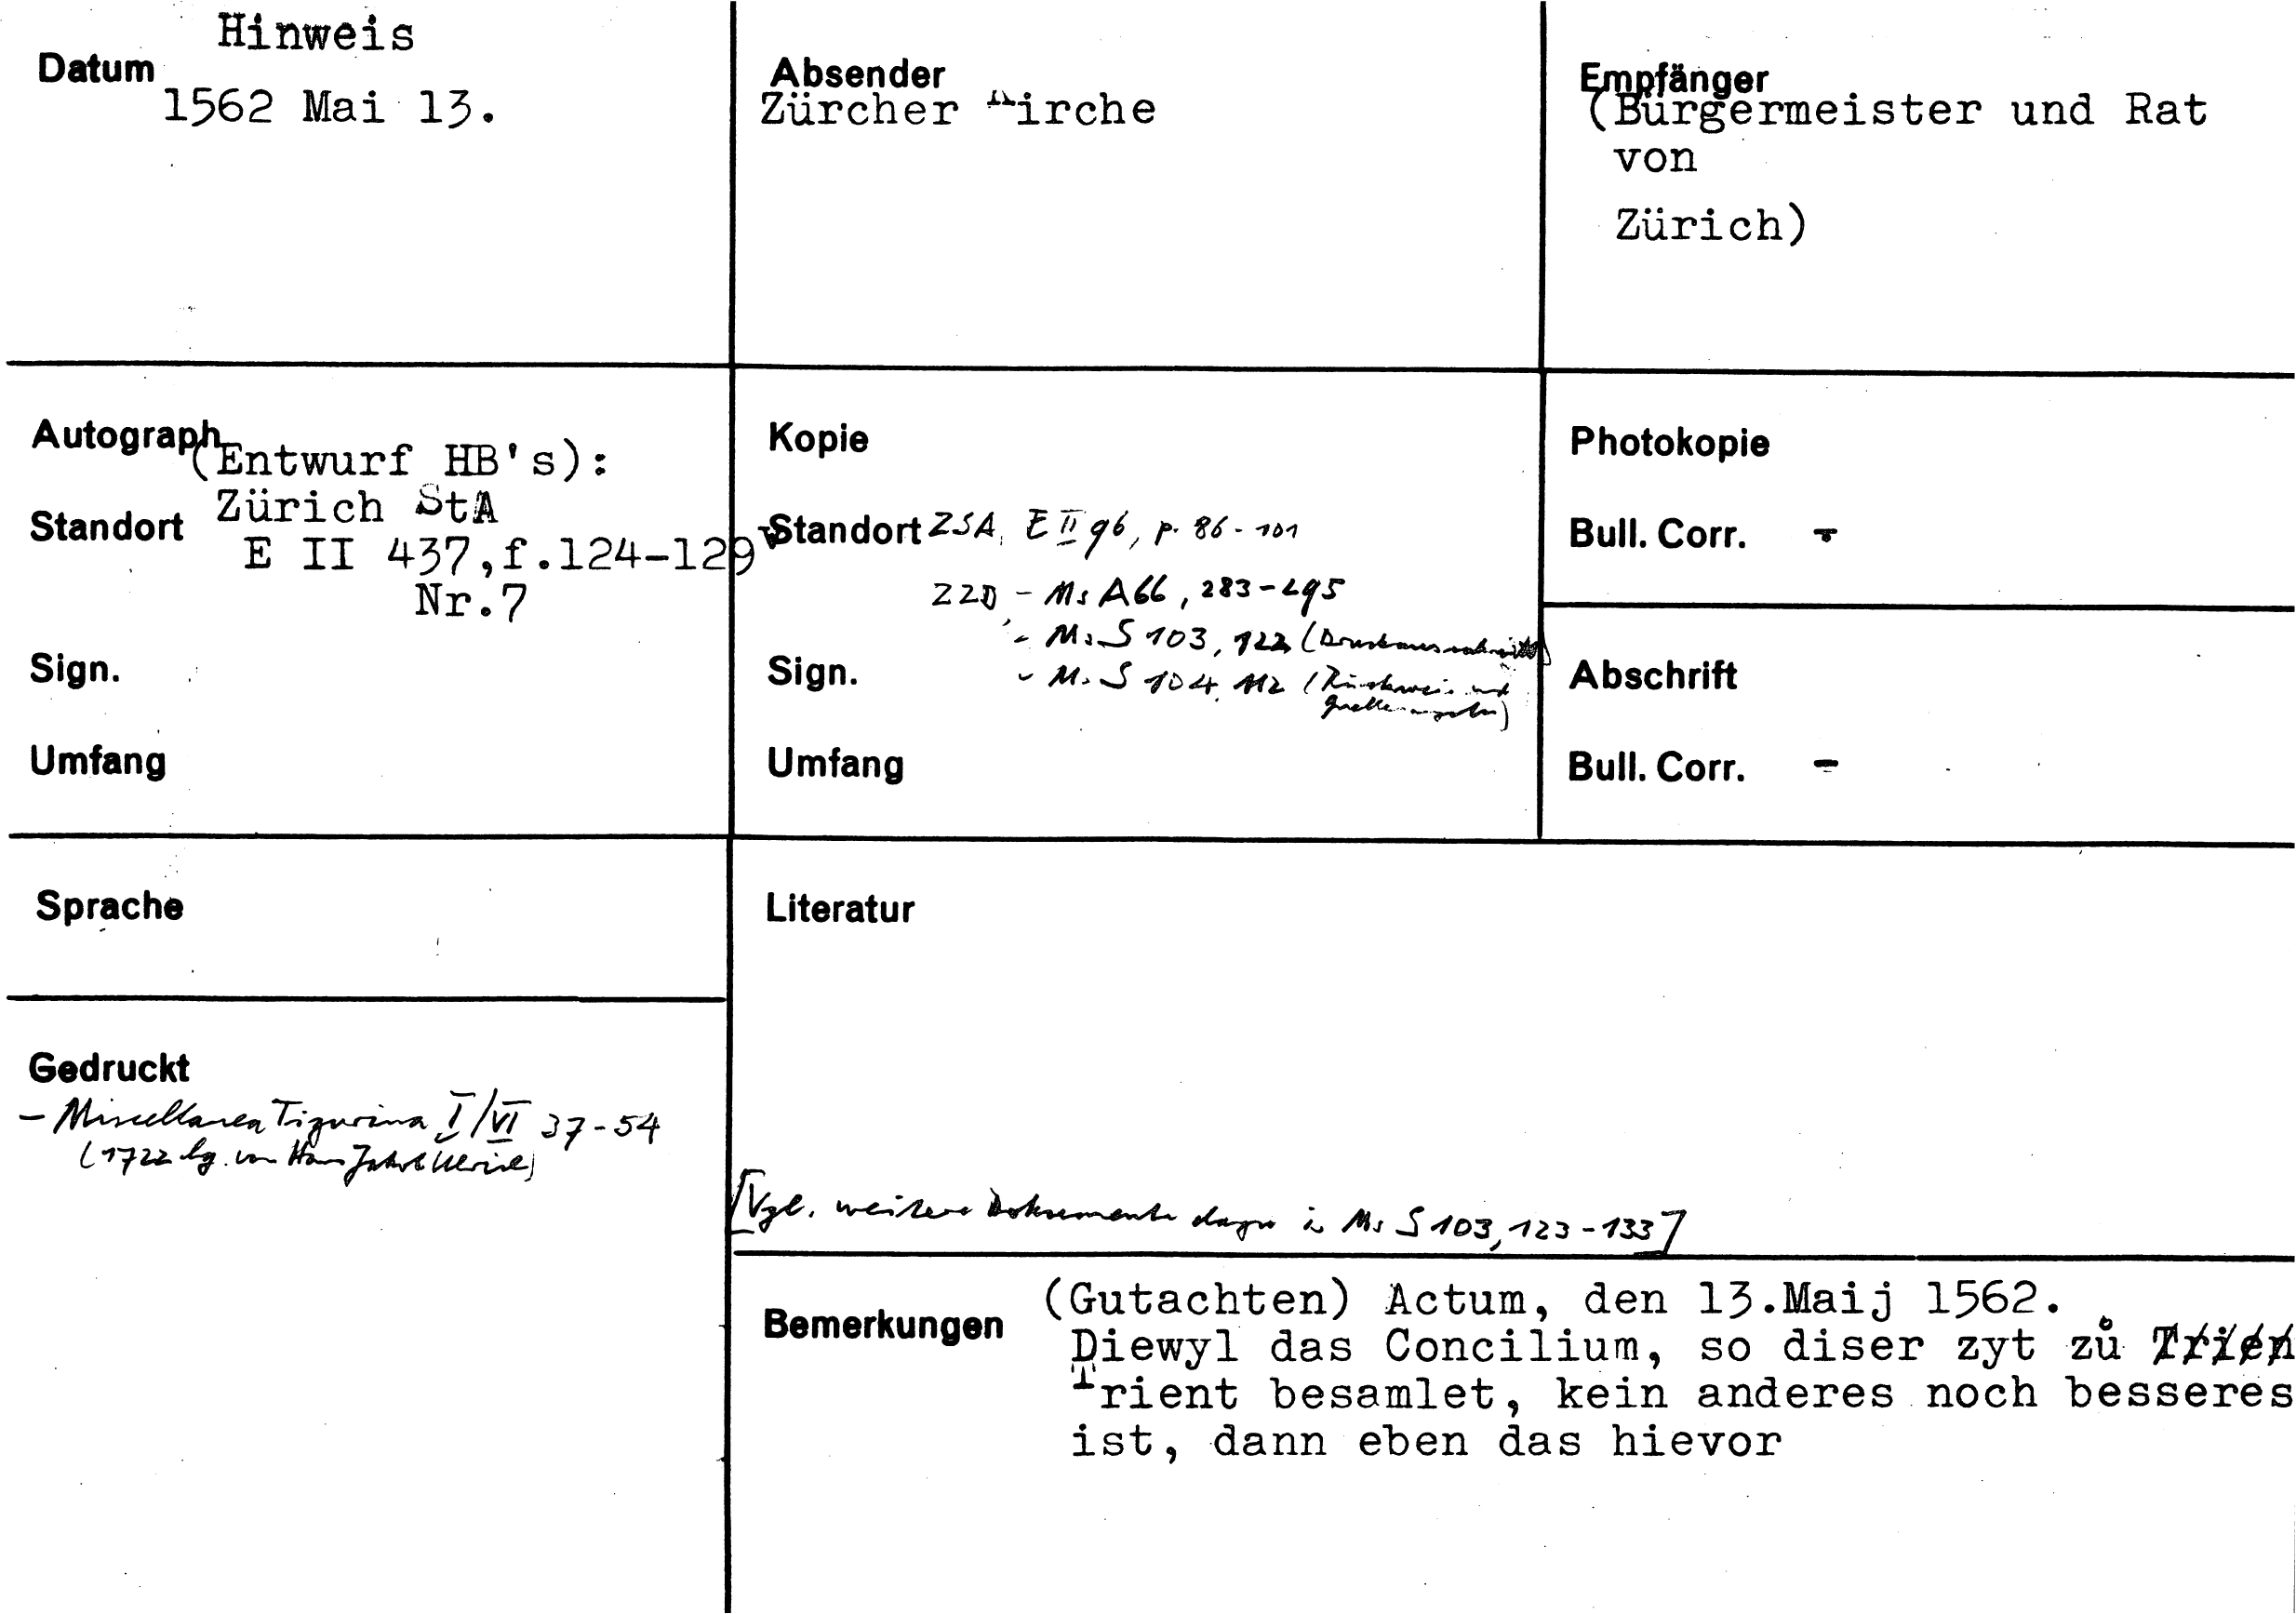 Hinweis
Datum
1562 Mai 13.
Absender
Zürcher Kirche
Empfänger
(Bürgermeister und Rat
von
Zürich)
Autograph
(Entwurf HB's):
Standort
Zürich StA
E II 437,f.124-129v
Nr.7
Sign.
Umfang
Kopie
Standort ZSA, E II 96, p. 86-101
ZZB - Ms A66, 283-295
- Ms S 103, 122 (Druckausschnitt)
Sign.
- Ms S 104, 112 (Rückweis und
Quellenangabe)
Umfang
Photokopie
Bull. Corr. -
Abschrift
Bull. Corr. -
Sprache
Gedruckt
- Miscellanea Tigurina I/VI 37-54
(1722 hg. von Hans Jakob Ulrich)
Literatur
[Vgl. weitere Dokumente dazu in Ms S 103, 123-133]
Bemerkungen
(Gutachten) Actum, den 13.Maij 1562.
Diewyl das Concilium, so diser zyt zů Trien
Trient besamlet, kein anderes noch besseres
ist, dann eben das hievor